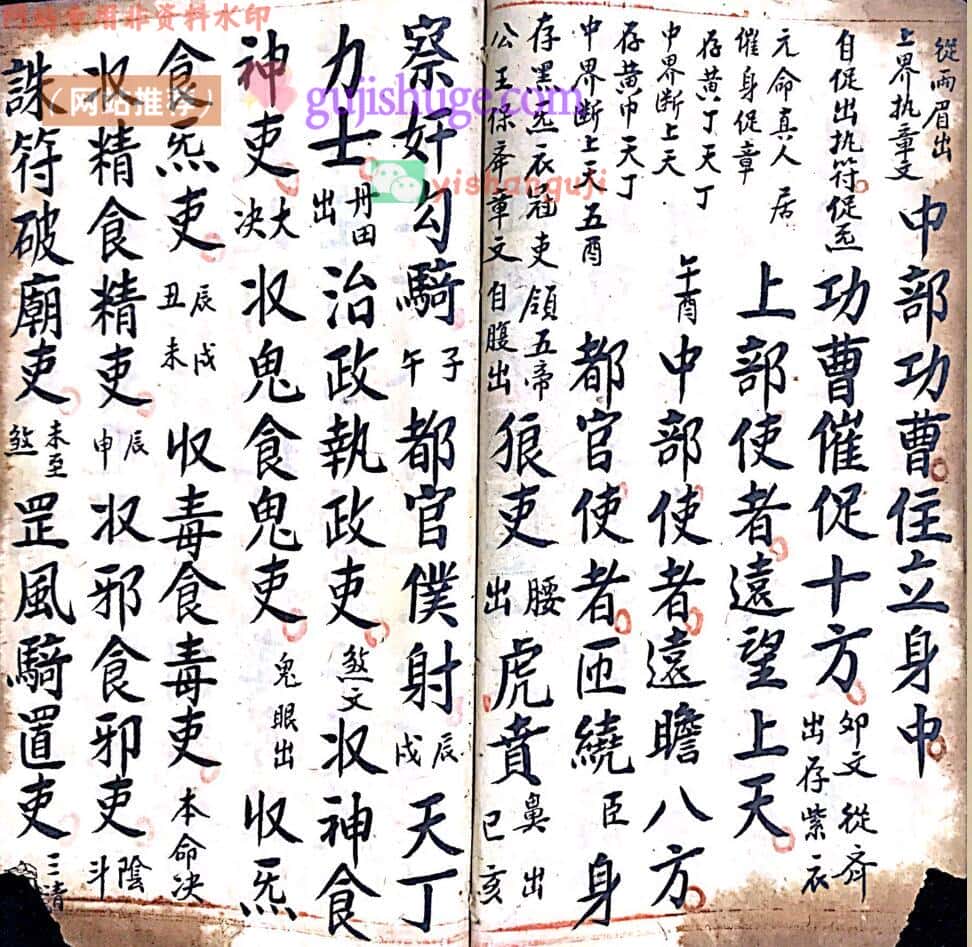 從兩眉出
上界执章文
中部功曹住立身中
自促出执符促炁
功曹催促十方
卯文從齐
出存紫衣
元命真人居
催身促章
上部使者遠望上天
存黄丁天丁
中界断上天
午酉
中部使者遠瞻八方
存黄巾天丁
中界断上天五酉
都官使者匝繞臣身
存黑炁衣冠吏領五帝
公王保奉章文自腹出
狼吏
腰出
虎賁
鼻出
巳亥
察奸勾騎
子午
都官僕射
辰戌
天丁
力士
丹田出
治政執政吏
煞文
收神食
神吏
大决
收鬼食鬼吏
鬼眼出
收炁
食炁吏
辰戌
丑未
收毒食毒吏
本命决
收精食精吏
辰申
收邪食邪吏
陰斗
誅符破廟吏
未至煞
罡風騎置吏
三清
（网站推荐）
gujishuge.com
yishanguji